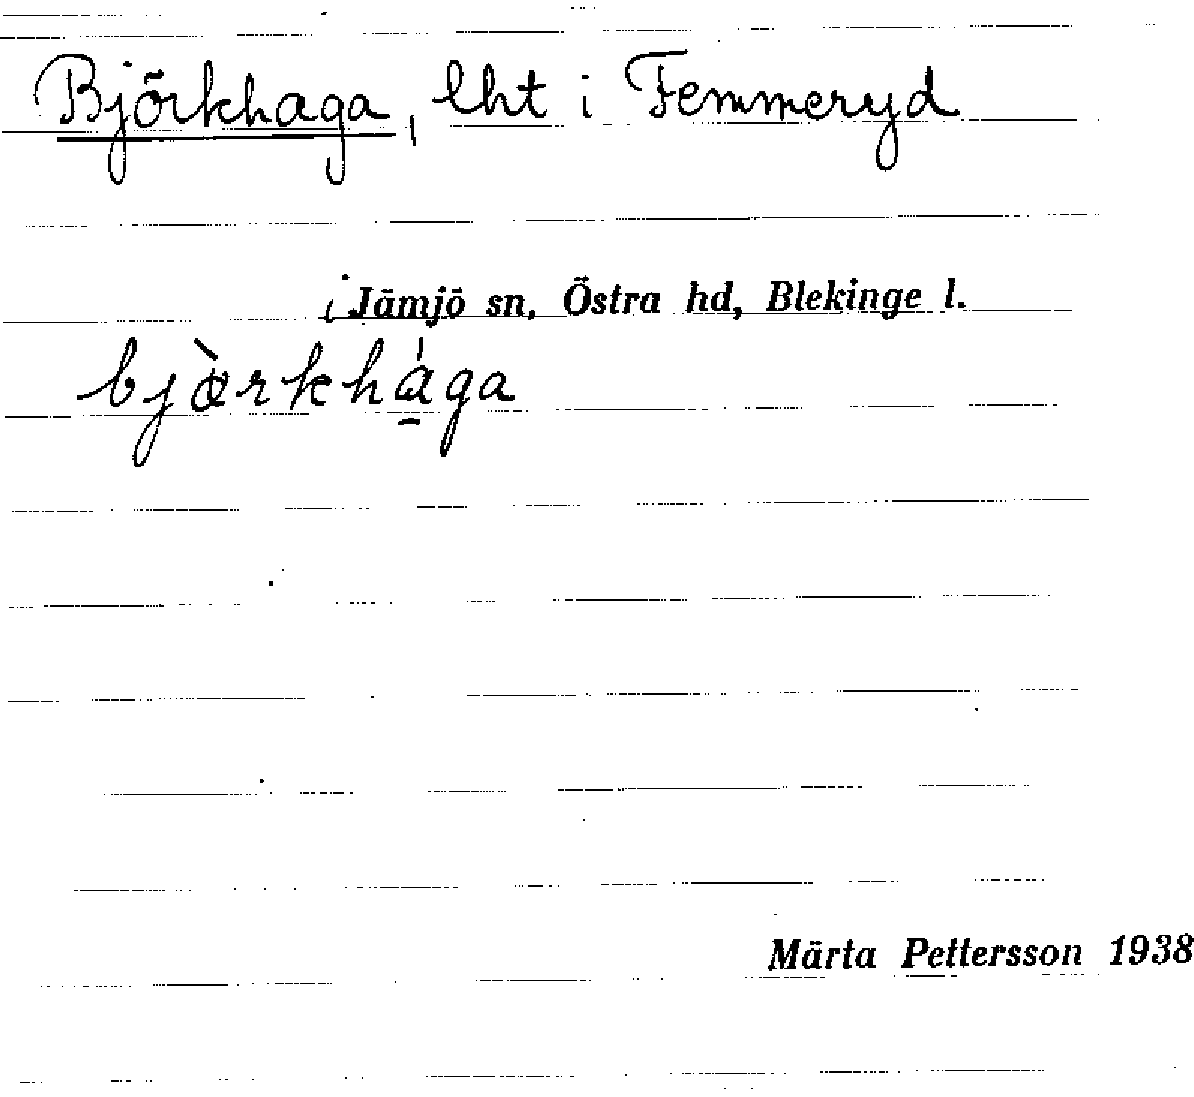 Björkhaga, lht i Femmeryd
i Jämjö sn, Östra hd, Blekinge l.
bjœ̀rkhá̱ga
Märta Pettersson 1938